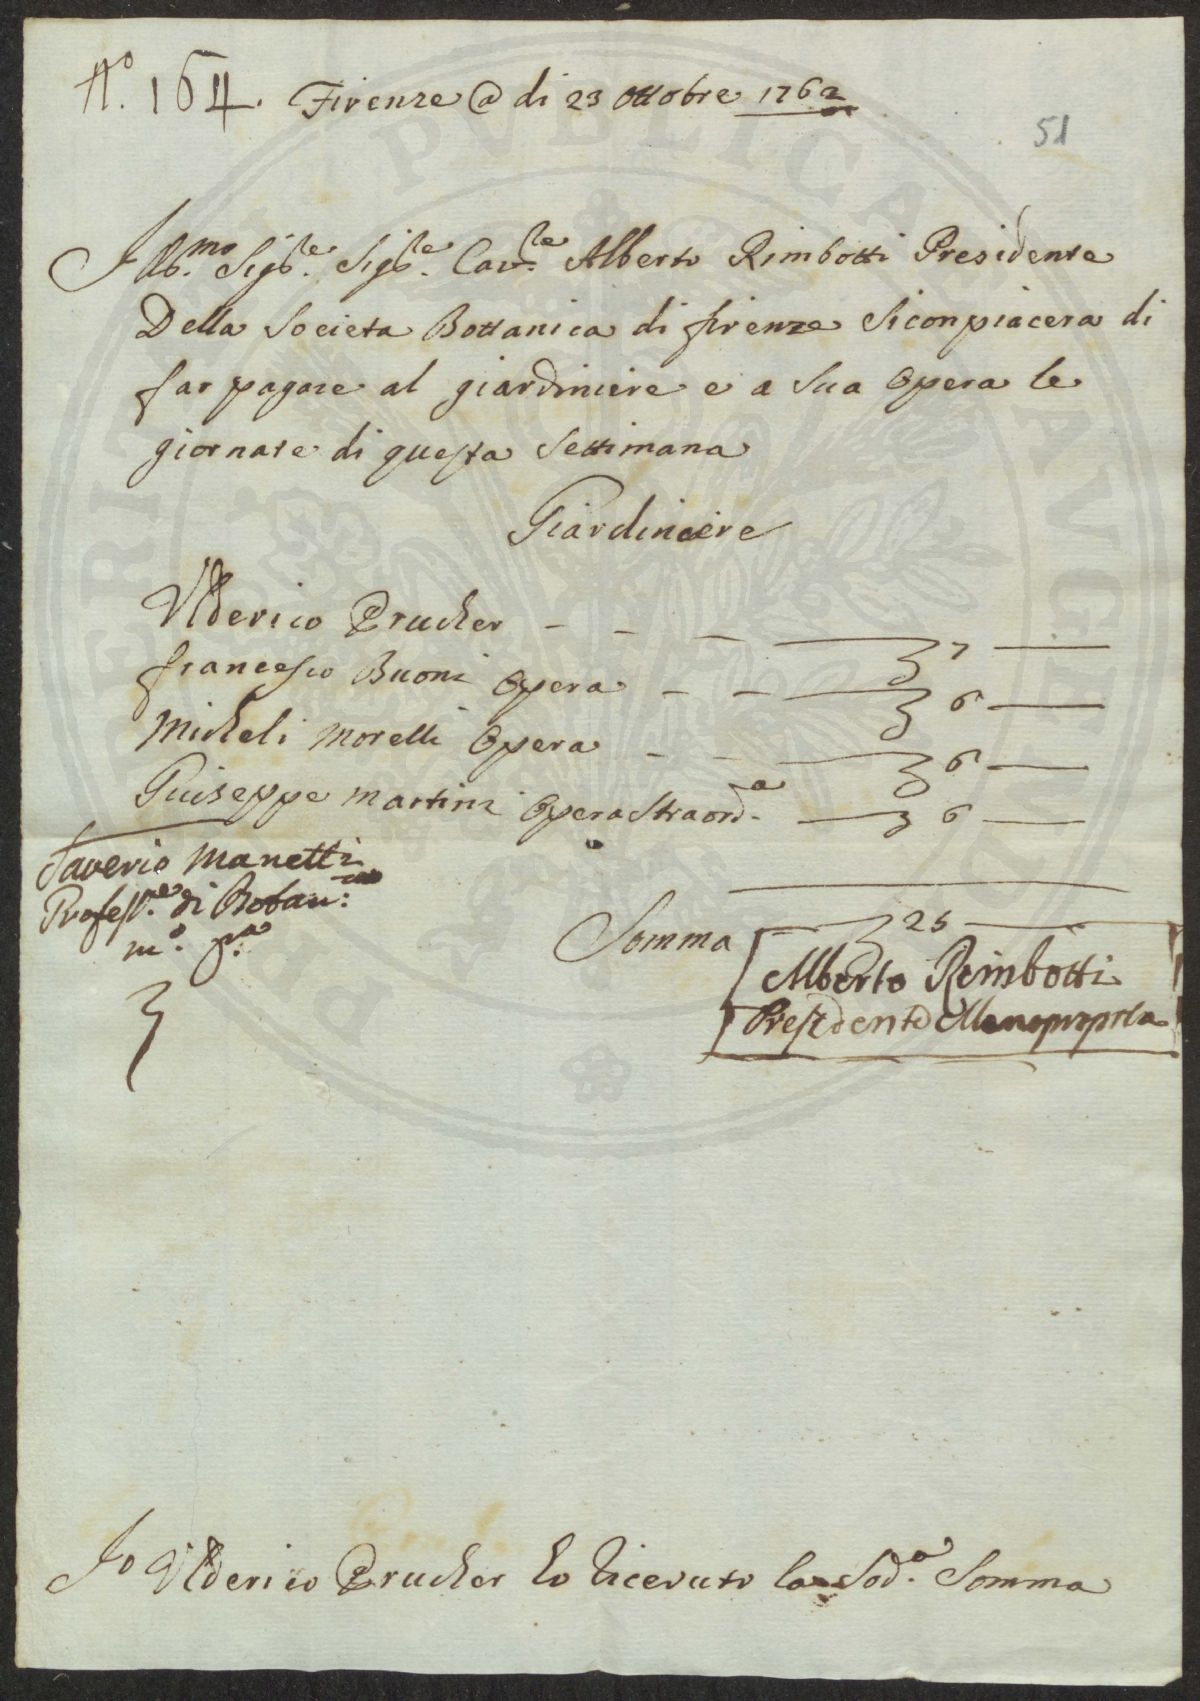 N.º 164. Firenze @ dì 23 Ottobre 1762
51
Ill.mo Sig.re Sig.re Cav.re Alberto Rimbotti Presidente
Della Societa Bottanica di firenze Siconpiacera di
far pagare al giardiniere e a Sua Opera le
giornate di questa Settimana
Giardiniere
Ulderico Prucher - - - 7 —
francesco Buoni Opera - - 6 —
Micheli Morelli Opera - - 6 —
Guiseppe Martini Opera Straord.a 6 —
Saverio Manetti
Profess.re di Botan:
m.º p.a
Somma 25 —
Alberto Rimbotti
Presidente Manopropria
Io Ulderico Prucher ho Riceuto la Sod.a Somma